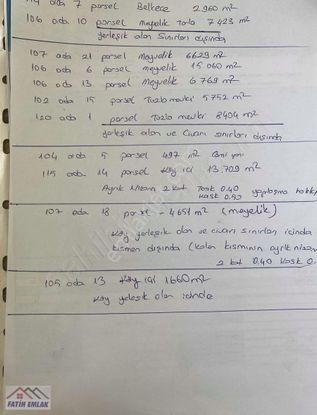 7 parsel Belkece 2960 m²
106 ada 10 parsel meyelik Tarla 7423 m²
Yerleşik alan Sınırları dışında
107 ada 21 parsel meyvelik 6629 m²
106 ada 6 parsel meyvelik 15060 m²
106 ada 13 parsel meyvelik 6769 m²
102 ada 15 parsel Tarla mevkii 5752 m²
120 ada 1 parsel Tarla mevkii 8404 m²
yerleşik alan ve civarı sınırları dışında
104 ada 5 parsel 497 m² Cami yanı
115 ada 14 parsel Köy içi 13.709 m²
Ayrık Nizam 2 kat Task 0.40
Kask 0.80 yapılaşma hakkı
107 ada 18 parsel - 4651 m² (meyelik)
Köy yerleşik alan ve civarı sınırları içinde
kısmen dışında (kalan kısmının ayrık nizam
2 kat 0.40 Kask 0.
105 ada 13 Köy içi 1660 m²
Köy yerleşik alan içinde
FATİH EMLAK